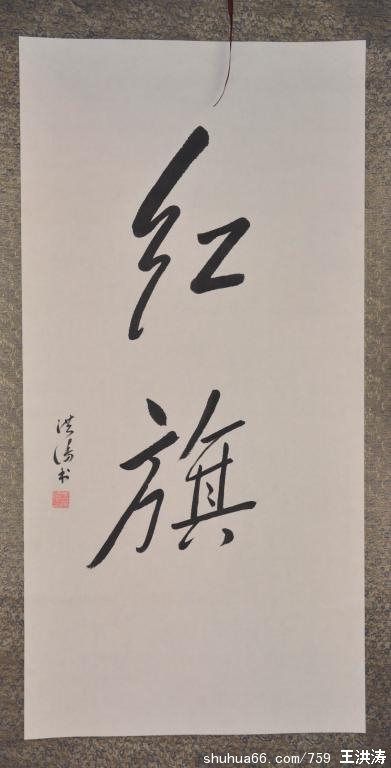 红旗
洪涛书
shuhua66.com/759 王洪涛